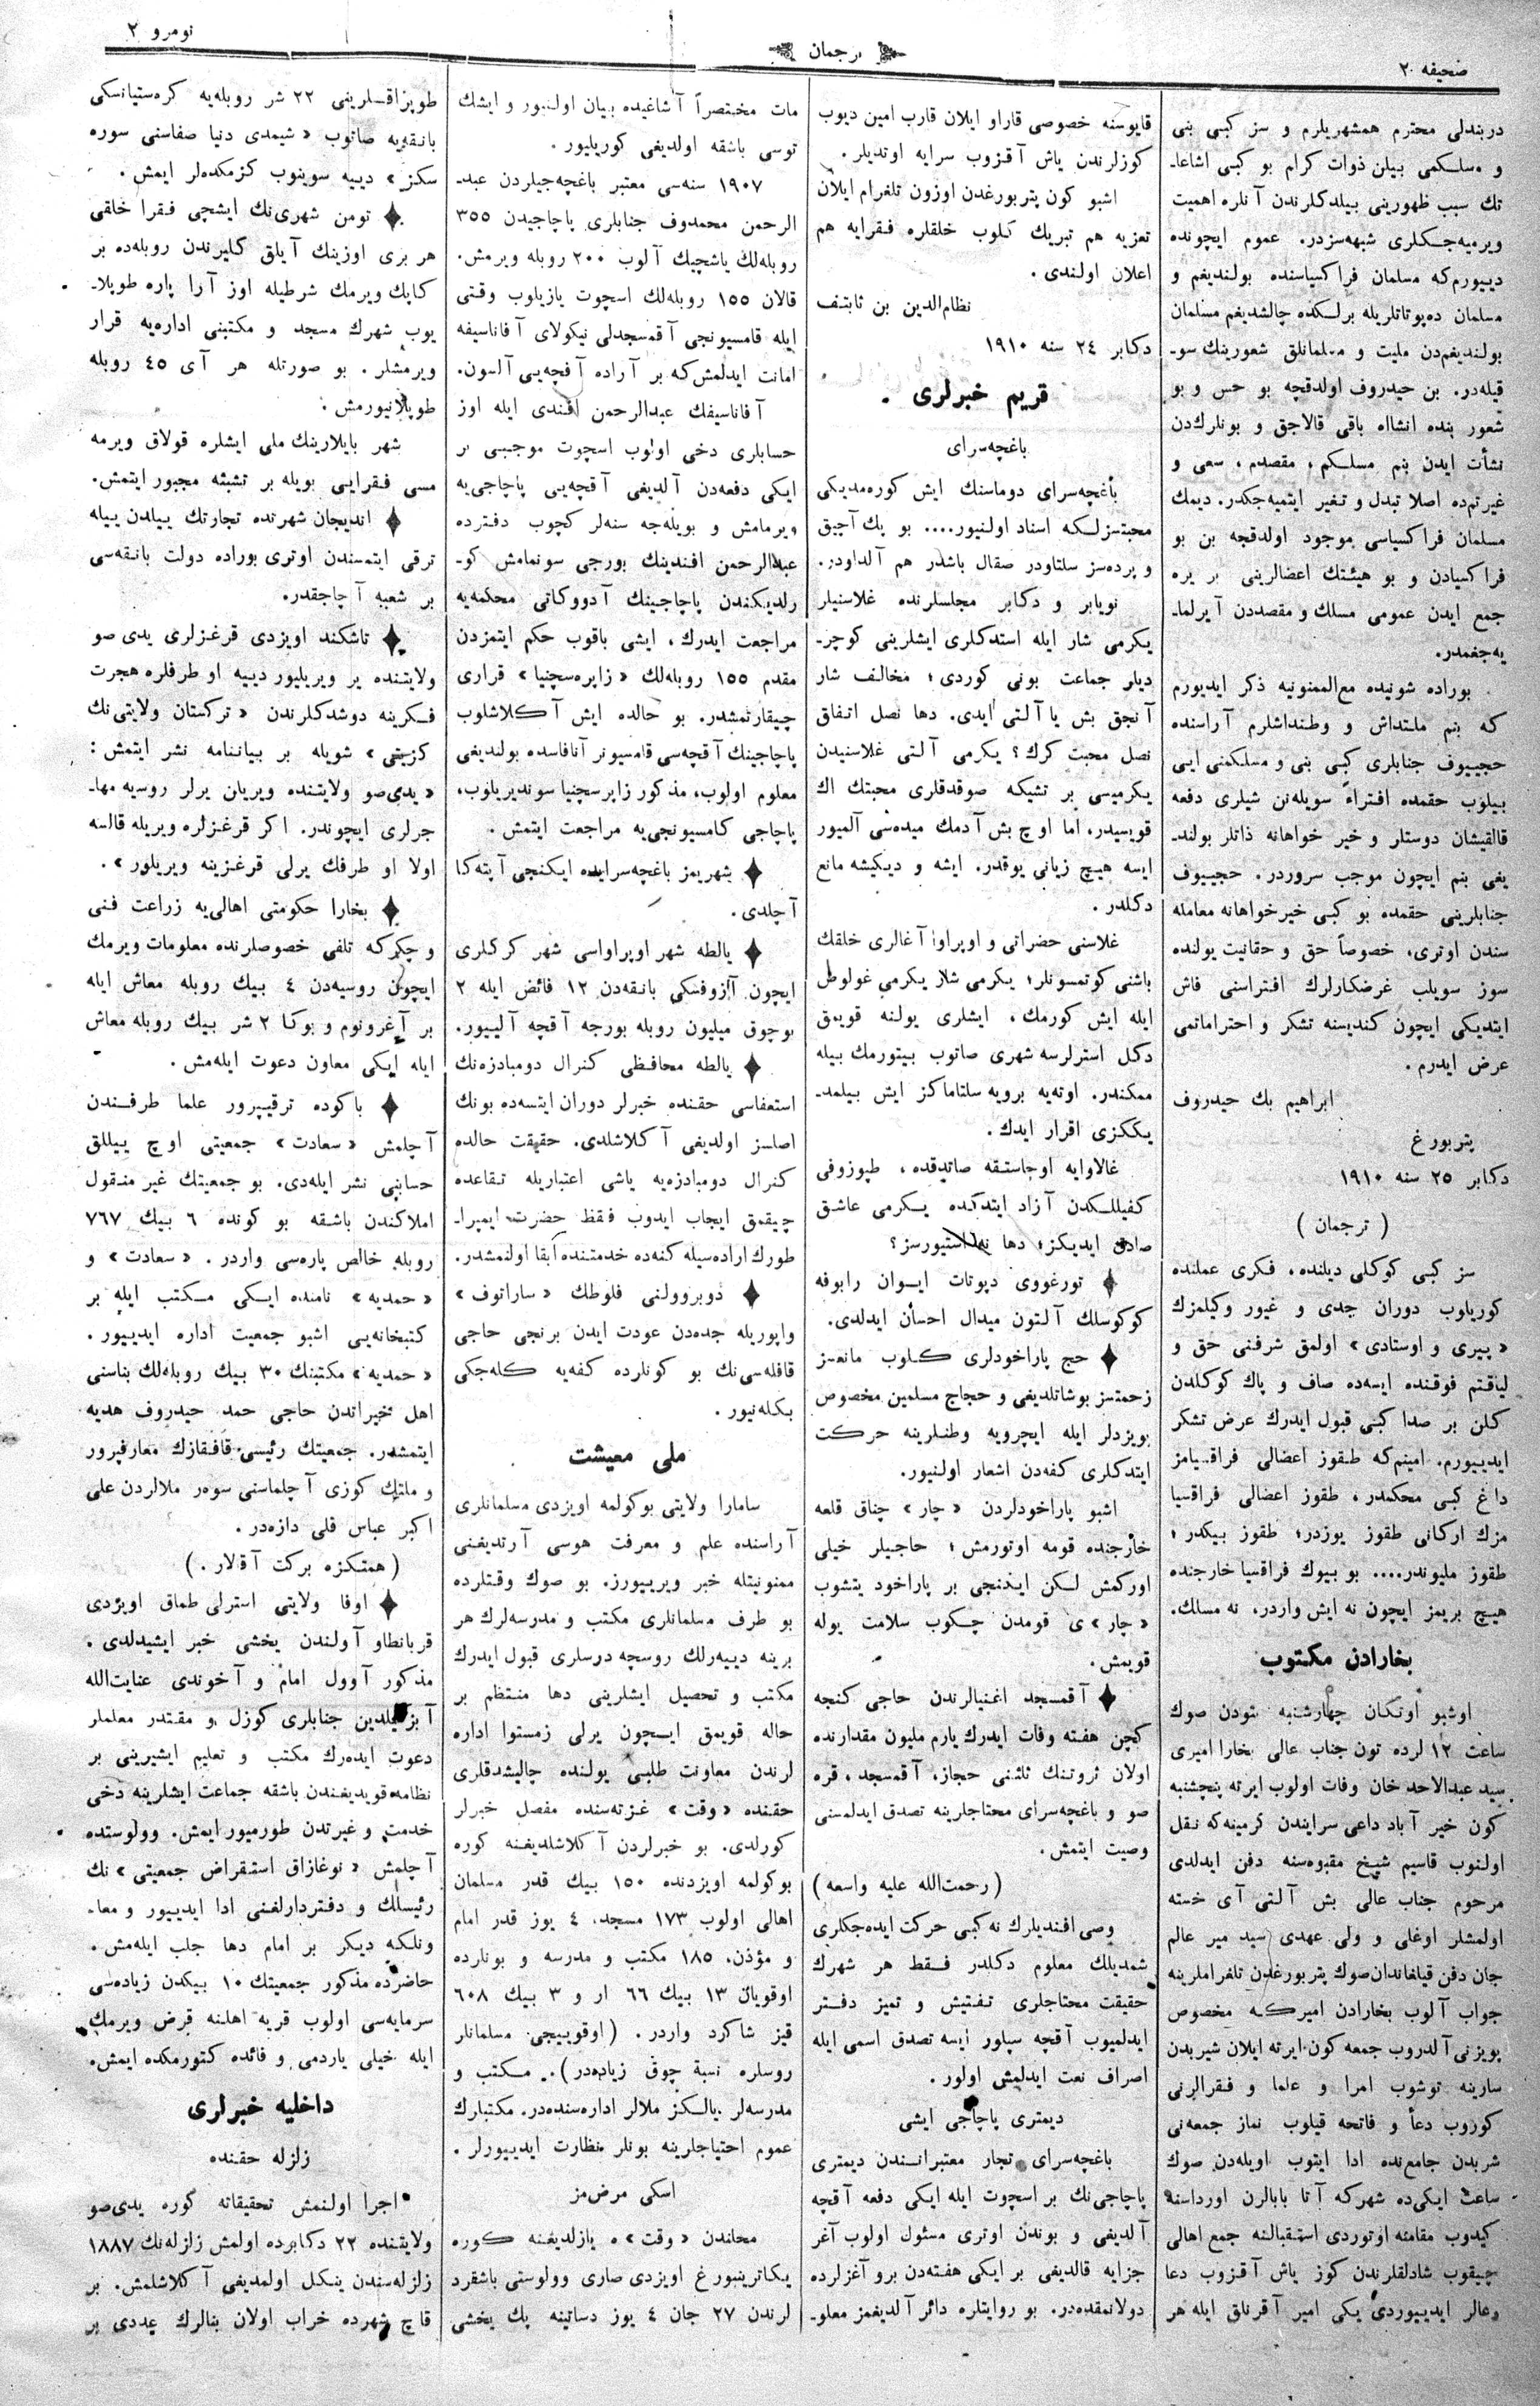 صحیفه ٢٠
ترجمان
نومرو ٢
دربندلی محترم همشهریلرم و سز کبی بنی
و مسلکمی بیلن ذوات کرام بو کبی اشاعا-
تك سبب ظهورینی بیلدکلرندن آنلره اهمیت
ویرمیه‌جکلری شبهه‌سزدر. عموم ایچونده
دییورم‌که مسلمان فراکسیاسنده بولندیغم و
مسلمان ده‌پوتاتلریله برلکده چالشدیغم مسلمان
بولندیغم‌دن ملیت و مسلمانلق شعورینك سو-
قیله‌در. بن حیدروف اولدقچه بو حس و بو
شعور بنده انشاالله باقی قالاجق و بونلرك‌دن
نشأت ایدن بنم مسلکم، مقصدم، سعی و
غیرتم‌ده اصلا تبدل و تغیر ایتمیه‌جکدر. دیمك
مسلمان فراکسیاسی موجود اولدقچه بن بو
فراکسیادن و بو هیئتك اعضالرینی بر یره
جمع ایدن عمومی مسلك و مقصددن آیرلما-
یه‌جغمدر.
بوراده شونیده مع‌الممنونیه ذکر ایدیورم
که بنم ملتداش و وطنداشلرم آراسنده
حجییوف جنابلری کبی بنی و مسلکمنی ایی
بیلوب حقمده افتراءً سویله‌نن شیلری دفعه
قالقیشان دوستلر و خیر خواهانه ذاتلر بولند-
یغی بنم ایچون موجب سروردر. حجییوف
جنابلرینی حقمده بو کبی خیرخواهانه معامله
سندن اوتری، خصوصاً حق و حقانیت یولنده
سوز سویلب غرضکارلرك افتراسنی فاش
ایتدیکی ایچون کندیسنه تشکر و احتراماتمی
عرض ایدرم.
ابراهیم بك حیدروف
پتربورغ
دکابر ٢٥ سنه ١٩١٠
( ترجمان )
سز کبی کوکلی دیلنده، فکری عملنده
کوریلوب دوران جدی و غیور وکیلمزك
«پیری و اوستادی» اولمق شرفنی حق و
لیاقتم فوقنده ایسه‌ده صاف و پاك کوکلدن
کلن بر صدا کبی قبول ایدرك عرض تشکر
ایدییورم. امینم‌که طقوز اعضالی فراقسیامز
داغ کبی محکمدر، طقوز اعضالی فراقسیا
مزك ارکانی طقوز یوزدر؛ طقوز بیكدر؛
طقوز ملیوندر.... بو بیوك فراقسیا خارجنده
هیچ بریمز ایچون نه ایش واردر، نه مسلك.
بخارادن مکتوب
اوشبو اوتکان چهارشنبه تتودن صوك
ساعت ١٢ لرده تون جناب عالی بخارا امیری
سید عبدالاحد خان وفات اولوب ایرته پنچشنبه
کون خیر آباد داعی سرایندن کرمینه‌که نقل
اولنوب قاسیم شیخ مقبره‌سنه دفن ایدلدی
مرحوم جناب عالی بش آلتی آی خسته
اولمشلر اوغلی و ولی عهدی سید میر عالم
جان دفن قیلغاندان صوك پتربورغدن تلغراملرینه
جواب آلوب بخارادن امیرکه مخصوص
پویزنی آلدروب جمعه کون ایرته ایلان شیربدن
سارینه توشوب امرا و علما و فقرالرنی
کوروب دعأ و فاتحه قیلوب نماز جمعه‌نی
شربدن جامع‌نده ادا ایتوب اویله‌دن صوك
ساعت ایکی‌ده شهرکه آتا بابالرن اورداسنه
کیدوب مقامنه اوتوردی استقبالنه جمع اهالی
چیقوب شادلقلرندن کوز یاش آقزوب دعا
وعالر ایدییوردی یکی امیر آقرنلق ایله هر
قاپوسنه خصوصی قاراو ایلان قارب امین دیوب
کوزلرندن یاش آقزوب سرایه اوتدیلر.
اشبو کون پتربورغدن اوزون تلغرام ایلان
تعزیه هم تبریك کلوب خلقلره فقرایه هم
اعلان اولندی.
نظام‌الدین بن ثابتف
دکابر ٢٤ سنه ١٩١٠
قریم خبرلری
باغچه‌سرای
باغچه‌سرای دوماسنك ایش کوره‌مدیکی
محبتسزلکه اسناد اولنیور.... بو یك آچیق
و پرده‌سز سلتاودر صقال باشدر هم آلداودر.
نویابر و دکابر مجلسلرنده غلاسنیلر
یکرمی شار ایله استدکلری ایشلرینی کوچر-
دیلر جماعت بونی کوردی؛ مخالف شار
آنجق بش یا آلتی ایدی. دها نصل اتفاق
نصل محبت کرك؟ یکرمی آلتی غلاسنیدن
یکرمیسی بر تشیکه صوقدقلری محبتك اك
قویسیدر، اما اوچ بش آدمك میده‌سی آلمیور
ایسه هیچ زیانی یوقدر. ایشه و دیکیشه مانع
دکلدر.
غلاسنی حضراتی و اوپراوا آغالری خلقك
باشنی کوتمسونلر؛ یکرمی شلار یکرمی غولوط
ایله ایش کورمك، ایشلری یولنه قویمق
دکل استرلرسه شهری صاتوب بیتورمك بیله
ممکندر. اوته‌یه برویه سلتاماکز ایش بیلمد-
یککزی اقرار ایدك.
غالاوایه اوجاستقه صاتدقده، طیوزوفی
کفیللکدن آزاد ایتدکده یکرمی عاشق
صادق ایدیکز؛ دها نه استیورسز؟
تورغووی دیوتات ایوان رابوفه
کوکوسلك آلتون میدال احسأن ایدلدی.
حج پاراخودلری کلوب مانعسز
زحمتسز بوشاتلدیغی و حجاج مسلمین مخصوص
پویزدلر ایله ایچرویه وطنلرینه حرکت
ایتدکلری کفه‌دن اشعار اولنیور.
اشبو پاراخودلردن «چار» چناق قلعه
خارجنده قومه اوتورمش؛ حاجیلر خیلی
اورکمش لکن ایدنجی بر پاراخود یتشوب
«چار»ی قومدن چکوب سلامت یوله
قویمش.
آقمسجد اغنیالرندن حاجی کنجه
کچن هفته وفات ایدرك یارم ملیون مقدارنده
اولان ثروتنك ثلثنی حجاز، آقمسجد، قره
صو و باغچه‌سرای محتاجلرینه تصدق ایدلمسنی
وصیت ایتمش.
(رحمت‌الله علیه واسعه)
وصی افندیلرك نه کبی حرکت ایده‌جکلری
شمدیلك معلوم دکلدر فقط هر شهرك
حقیقت محتاجلری تفتیش و تمیز دفتر
ایدلمیوب آقچه سپلور ایسه تصدق اسمی ایله
اصراف نعت ایدلمش اولور.
دیمتری پاچاجی ایشی
باغچه‌سرای تجار معتبرانندن دیمتری
پاچاجی‌نك بر اسچوت ایله ایکی دفعه آقچه
آلدیغی و بوندن اوتری مسئول اولوب آغر
جزایه قالدیغی بر ایکی هفته‌دن برو آغزلرده
دولانمقده‌در. بو روایتلره دائر آلدیغمز معلو-
مات مختصراً آشاغیده بیان اولنیور و ایشك
توسی باشقه اولدیغی کوریلیور.
١٩٠٧ سنه‌سی معتبر باغچه‌جیلردن عبد-
الرحمن محمدوف جنابلری پاچاجیدن ٣٥٥
روبله‌لك یاشچیك آلوب ٢٠٠ روبله ویرمش.
قالان ١٥٥ روبله‌لك اسچوت یازیلوب وقتی
ایله قامسیونجی آقمسجدلی نیکولای آفاناسیفه
امانت ایدلمش‌که بر آراده آقچه‌یی آلسون.
آفاناسیفك عبدالرحمن افندی ایله اوز
حسابلری دخی اولوب اسچوت موجبی بر
ایکی دفعه‌دن آلدیغی آقچه‌یی پاچاجی‌یه
ویرمامش و بویله‌جه سنه‌لر کچوب دفترده
عبدالرحمن افندینك بورجی سونمامش کو-
رلدیکندن پاچاجینك آدووکاتی محکمه‌یه
مراجعت ایدرك، ایشی باقوب حکم ایتمزدن
مقدم ١٥٥ روبله‌لك «زاپره‌سچنیا» قراری
چیقارتمشدر. بو حالده ایش آکلاشلوب
پاچاجینك آقچه‌سی قامسیونر آنافاسده بولندیغی
معلوم اولوب، مذکور زاپرسچنیا سوندیریلوب،
پاچاجی کامسیونجی‌یه مراجعت ایتمش.
شهریمز باغچه‌سرایده ایکنجی آپته‌کا
آچلدی.
یالطه شهر اوپراواسی شهر کرکلری
ایچون آزوفسکی بانقه‌دن ١٢ فائض ایله ٢
بوچوق میلیون روبله بورجه آقچه آلییور.
یالطه محافظی کنرال دومبادزه‌نك
استعفاسی حقنده خبرلر دوران ایتسه‌ده بونك
اصلسز اولدیغی آکلاشلدی. حقیقت حالده
کنرال دومبادزه‌یه یاشی اعتباریله تقاعده
چیقمق ایجاب ایدوب فقط حضرت ایمپرا-
طورك اراده‌سیله کنه‌ده خدمتنده ابقا اولنمشدر.
دوبروولنی فلوطك «ساراتوف»
واپوریله جده‌دن عودت ایدن برنجی حاجی
قافله‌سی‌نك بو کونلرده کفه‌یه کله‌جکی
بکله‌نیور.
ملی معیشت
سامارا ولایتی بوکولمه اویزدی مسلمانلری
آراسنده علم و معرفت هوسی آرتدیغنی
ممنونیتله خبر ویرییورز. بو صوك وقتلرده
بو طرف مسلمانلری مکتب و مدرسه‌لرك هر
برینه دییه‌رلك روسچه درسلری قبول ایدرك
مکتب و تحصیل ایشلرینی دها منتظم بر
حاله قویمق ایچون یرلی زمستوا اداره
لرندن معاونت طلبی یولنده چالیشدقلری
حقنده «وقت» غزته‌سنده مفصل خبرلر
کورلدی. بو خبرلردن آکلاشلدیغنه کوره
بوکولمه اویزدنده ١٥٠ بیك قدر مسلمان
اهالی اولوب ١٧٣ مسجد، ٤ یوز قدر امام
و مؤذن، ١٨٥ مکتب و مدرسه و بونلرده
اوقویان ١٣ بیك ٦٦ ار و ٣ بیك ٦٠٨
قیز شاکرد واردر. (اوقوییجی مسلمانلر
روسلره نسبة چوق زیاده‌در). مکتب و
مدرسه‌لر یالکز ملالر اداره‌سنده‌در. مکتبلرك
عموم احتیاجلرینه بونلر نظارت ایدییورلر.
اسکی مرض‌مز
محاندن «وقت»ه یازلدیغنه کوره
یکاترینبورغ اویزدی صاری وولوستی باشقرد
لرندن ٢٧ جان ٤ یوز دساتینه پك یخشی
طوپراقلرینی ٢٢ شر روبله‌یه کره‌ستیانسکی
بانقه‌یه صاتوب «شیمدی دنیا صفاسنی سوره
سکز» دییه سوینوب کزمکده‌لر ایمش.
تومن شهری‌نك ایشچی فقرا خلقی
هر بری اوزینك آیلق کلیرندن روبله‌ده بر
کاپك ویرمك شرطیله اوز آرا پاره طوپلا-
یوب شهرك مسجد و مکتبنی اداره‌یه قرار
ویرمشلر. بو صورتله هر آی ٤٥ روبله
طوپلانیورمش.
شهر بایلارینك ملی ایشلره قولاق ویرمه
مسی فقرایی بویله بر تشبثه مجبور ایتمش.
اندیجان شهرنده تجارتك ییلدن ییله
ترقی ایتمسندن اوتری بوراده دولت بانقه‌سی
بر شعبه آچاجقدر.
تاشکند اویزدی قرغزلری یدی صو
ولایتنده یر ویریلیور دییه او طرفلره هجرت
فکرینه دوشدکلرندن «ترکستان ولایتی‌نك
کزیتی» شویله بر بیاننامه نشر ایتمش:
«یدی‌صو ولایتنده ویریان یرلر روسیه مها-
جرلری ایچوندر. اکر قرغزلره ویریله قالسه
اولا او طرفك یرلی قرغزینه ویریلور».
بخارا حکومتی اهالی‌یه زراعت فنی
و چکرکه تلفی خصوصلرنده معلومات ویرمك
ایچون روسیه‌دن ٤ بیك روبله معاش ایله
بر آغرونوم و بوکا ٢ شر بیك روبله معاش
ایله ایکی معاون دعوت ایله‌مش.
باکوده ترقیپرور علما طرفندن
آچلمش «سعادت» جمعیتی اوچ ییللق
حسابنی نشر ایله‌دی. بو جمعیتك غیر منقول
املاکندن باشقه بو کونده ٦ بیك ٧٦٧
روبله خالص پاره‌سی واردر. «سعادت» و
«حمدیه» نامنده ایکی مکتب ایله بر
کتبخانه‌یی اشبو جمعیت اداره ایدییور.
«حمدیه» مکتبنك ٣٠ بیك روبله‌لك بناسنی
اهل خیراتدن حاجی حمد حیدروف هدیه
ایتمشدر. جمعیتك رئیسی قافقازك معارفپرور
و ملتك کوزی آچلماسنی سوه‌ر ملالردن علی
اکبر عباس قلی دازه‌در.
(همتکزه برکت آقالار.)
اوفا ولایتی استرلی طماق اویزدی
قربانطاو آولندن یخشی خبر ایشیدلدی.
مذکور آوول امام و آخوندی عنایت‌الله
جنابلری کوزل و مقتدر معلملر
دعوت ایده‌رك مکتب و تعلیم ایشیرینی بر
نظامه قویدیغندن باشقه جماعت ایشلرینه دخی
خدمت و غیرتدن طورمیور ایمش. وولوستده
آچلمش «نوغازاق استقراض جمعیتی»نك
رئیسلك و دفتردارلغنی ادا ایدییور و معا-
ونلکیه دیکر بر امام دها جلب ایله‌مش.
حاضرده مذکور جمعیتك ١٠ بیكدن زیاده‌سی
سرمایه‌سی اولوب قریه اهلنه قرض ویرمك
ایله خیلی یاردمی و فائده کتورمکده ایمش.
داخلیه خبرلری
زلزله حقنده
اجرا اولنمش تحقیقاته کوره یدی‌صو
ولایتنده ٢٢ دکابرده اولمش زلزله‌نك ١٨٨٧
زلزله‌سندن ینکل اولمدیغی آکلاشلمش. بر
قاچ شهرده خراب اولان بنالرك عددی بر